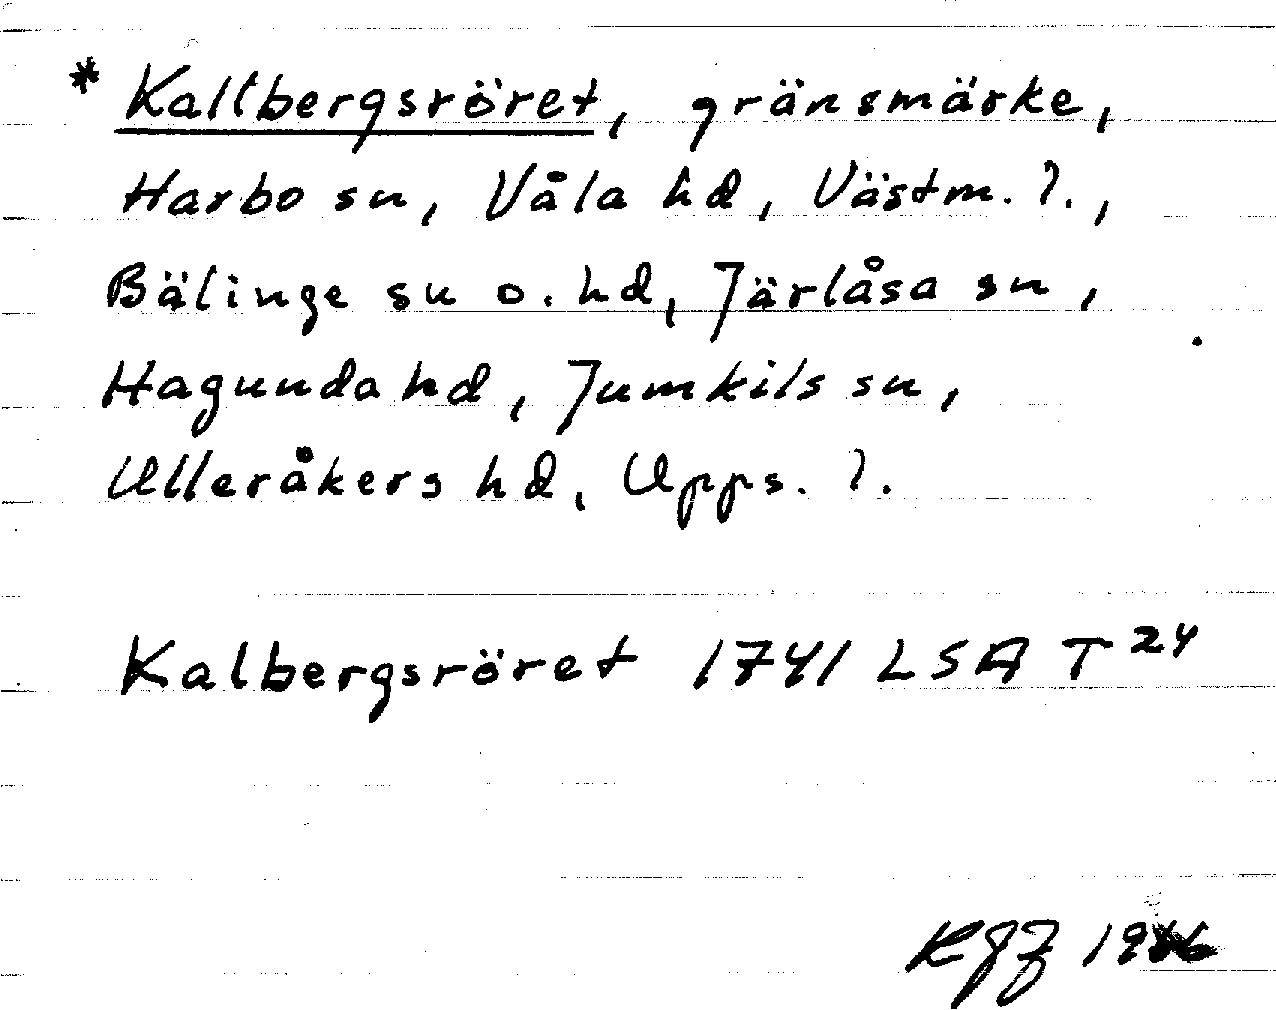 * Kallbergsröret, gränsmärke,
Harbo sn, Våla hd, Västm. l.,
Bälinge sn o. hd, Järlåsa sn,
Hagunda hd, Jumkils sn,
Ulleråkers hd, Upps. l.
Kalbergsröret 1741 LSA T 24